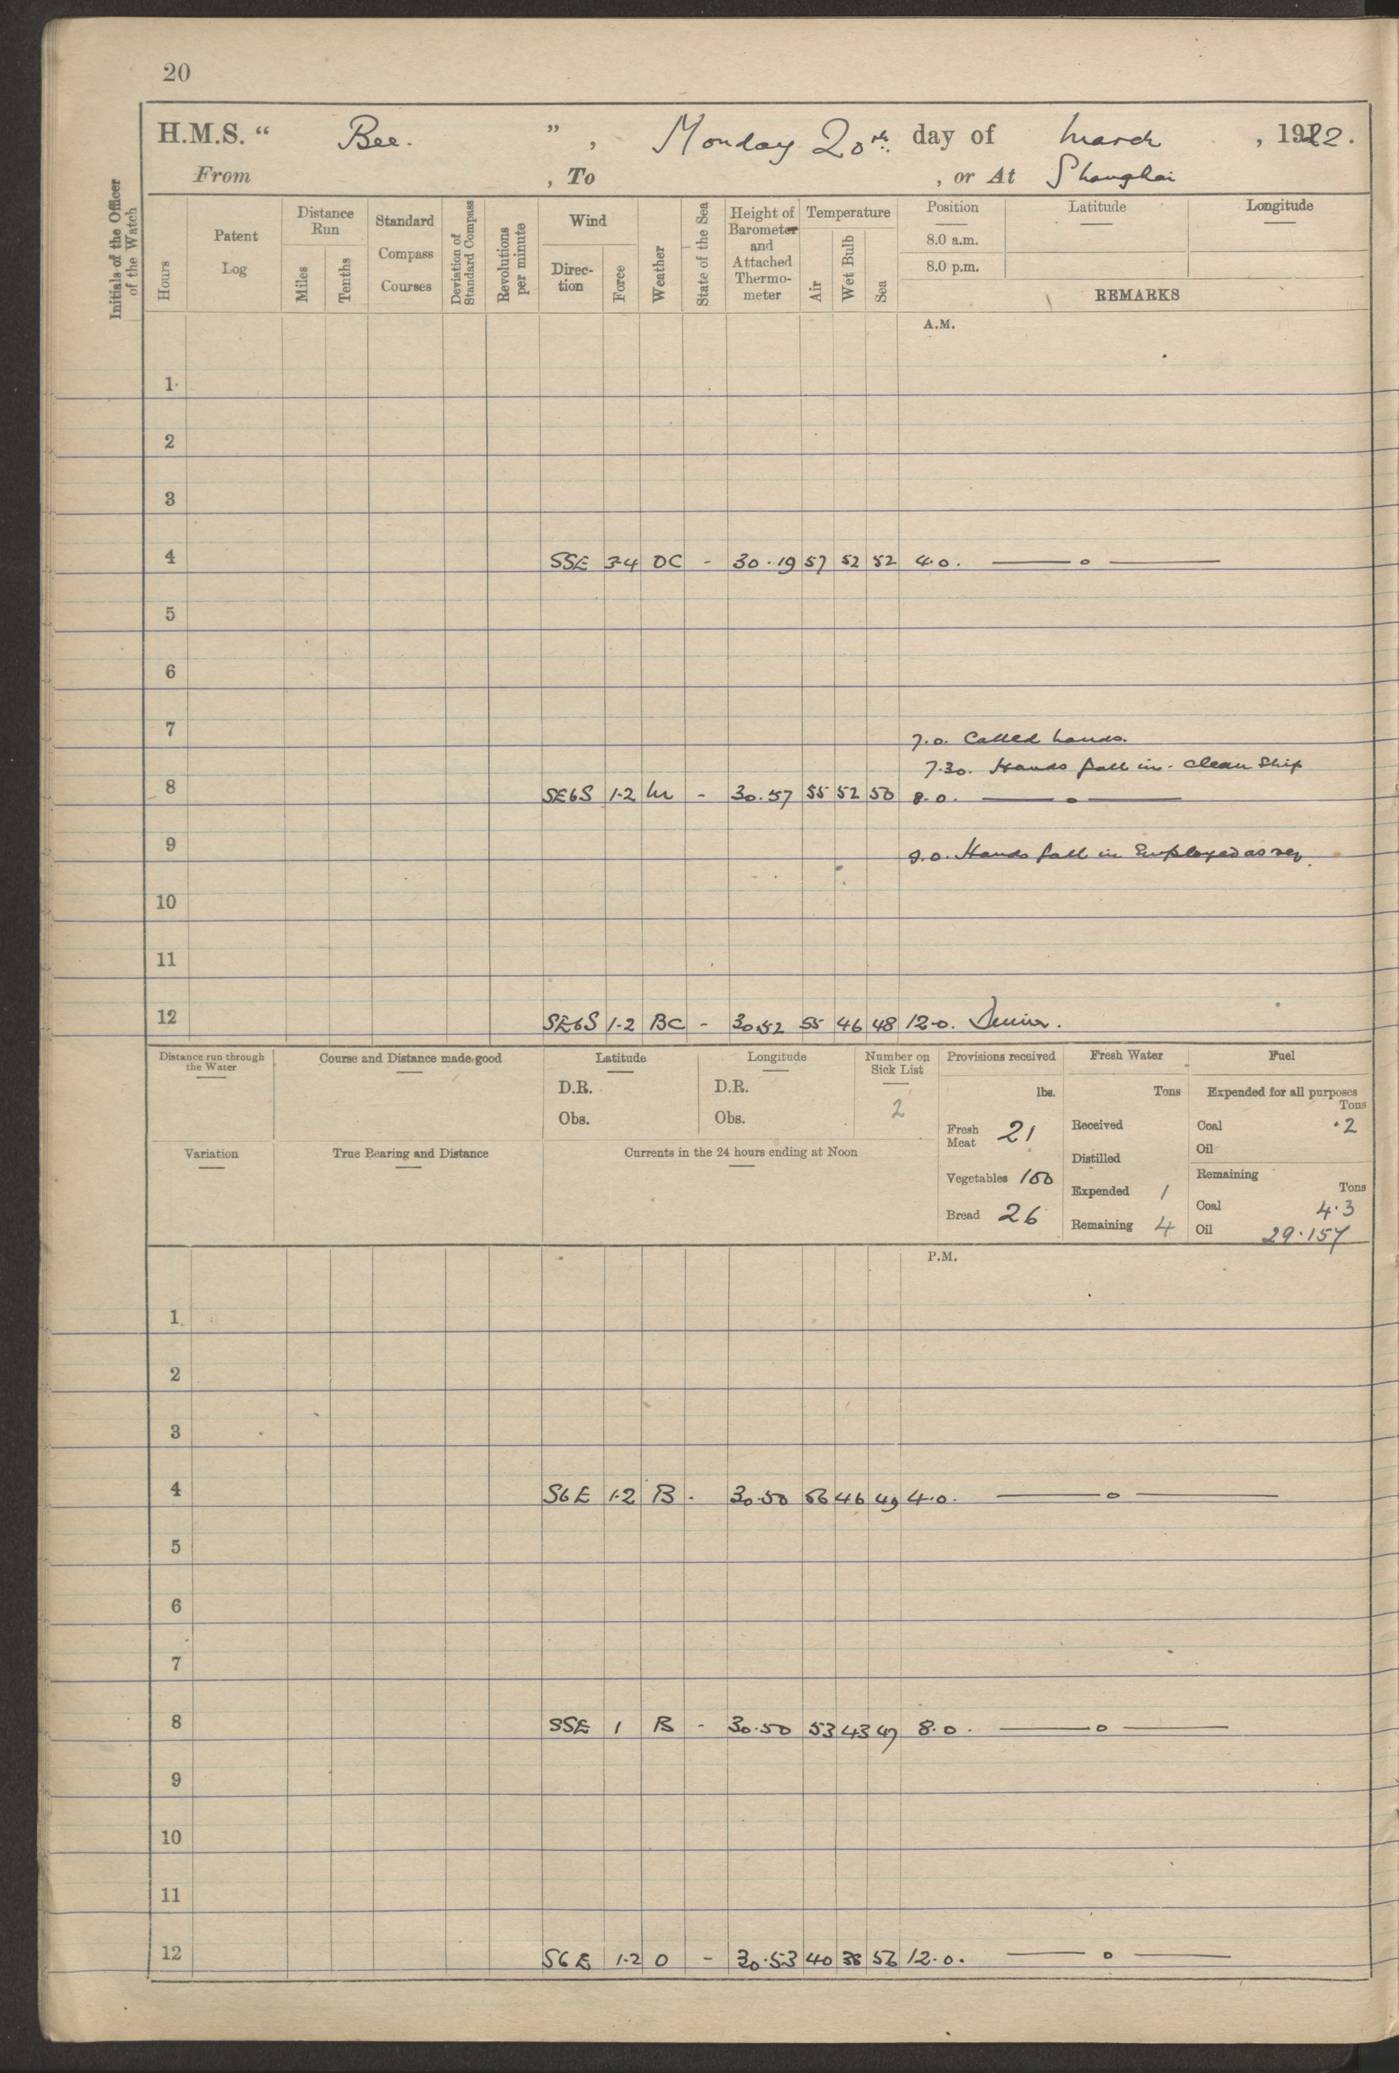 20
H.M.S. " Bee. " , Monday 20th day of March , 1922.
From , To , or At Shanghai
Initials of the Officer of the Watch
Hours
Patent Log
Distance Run
Miles
Tenths
Standard Compass Courses
Deviation of Standard Compass
Revolutions per minute
Wind
Direc-tion
Force
Weather
State of the Sea
Height of Barometer and Attached Thermo-meter
Temperature
Air
Wet Bulb
Sea
Position
8.0 a.m.
8.0 p.m.
Latitude
Longitude
REMARKS
A.M.
1
2
3
4 SSE 3-4 OC - 30.19 57 52 52 4.0. —— o ——
5
6
7 7.0. Called hands.
7.30. Hands fall in. Clean Ship
8 SE6S 1-2 - 30.57 55 52 50 8.0. —— o ——
9 9.0. Hands fall in Employed as req.
10
11
12 SE6S 1-2 BC - 30.52 55 46 48 12.0.
Distance run through the Water
Course and Distance made good
Latitude
D.R.
Obs.
Longitude
D.R.
Obs.
Number on Sick List
2
Provisions received
lbs.
Fresh Meat 21
Vegetables 100
Bread 26
Fresh Water
Tons
Received
Distilled
Expended 1
Remaining 4
Fuel
Expended for all purposes
Tons
Coal .2
Oil
Remaining
Tons
Coal 4.3
Oil 29.157
Variation
True Bearing and Distance
Currents in the 24 hours ending at Noon
P.M.
1
2
3
4 S6E 1-2 B. 30.50 46 49 4.0. —— o ——
5
6
7
8 SSE 1 B - 30.50 53 43 47 8.0. —— o ——
9
10
11
12 S6E 1-2 O - 30.53 40 38 12.0. —— o ——